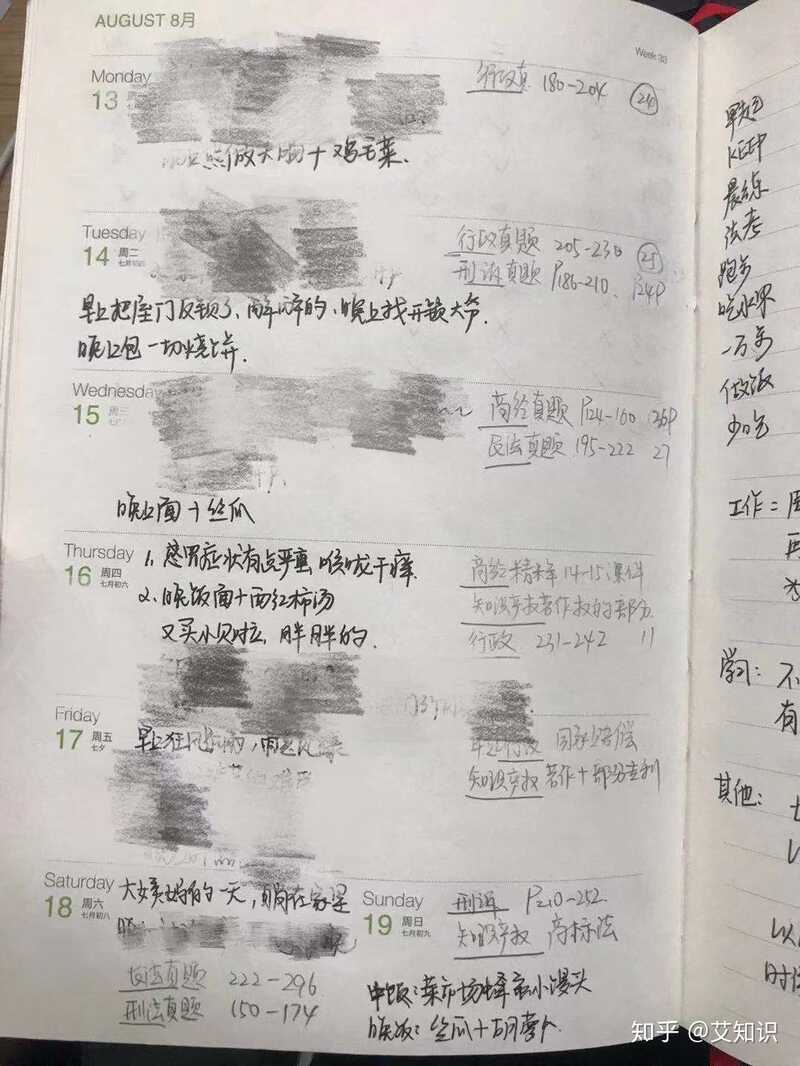 AUGUST 8月
Week 33
Monday
13
行政真 180-204 24
做大面+鸡毛菜.
Tuesday
14 周二
七月初四
行政真题 205-230 25
刑诉真题 P186-210. 24P
早上把屋门反锁了、醉醉的、晚上找开锁大爷.
晚上包一切烧饼.
Wednesday
15 周三
商经真题 P124-160 36P
民法真题 195-222 27
晚上面+丝瓜
Thursday
16 周四
七月初六
1、感冒症状有点严重 喉咙干痒.
2、晚饭面+西红柿汤
又买小贝啦, 胖胖的.
商经精粹 14-15课件
知识产权著作权的部分
行政 231-242 11
Friday
17 周五
七夕
早上狂风
行政 国家赔偿
知识产权 著作+部分专利
Saturday
18 周六
七月初八
大姨妈的一天, 躺在家里
民法真题 222-296
刑法真题 150-174
Sunday
19 周日
七月初九
刑诉 P210-252.
知识产权 商标法
中饭:菜市场蜂蜜小馒头
晚饭: 丝瓜+胡萝卜.
早起
KEEP
晨练
法考
跑步
吃水果
一万步
做饭
少吃
工作:
学习: 不
有
其他:
以
知乎 @艾知识